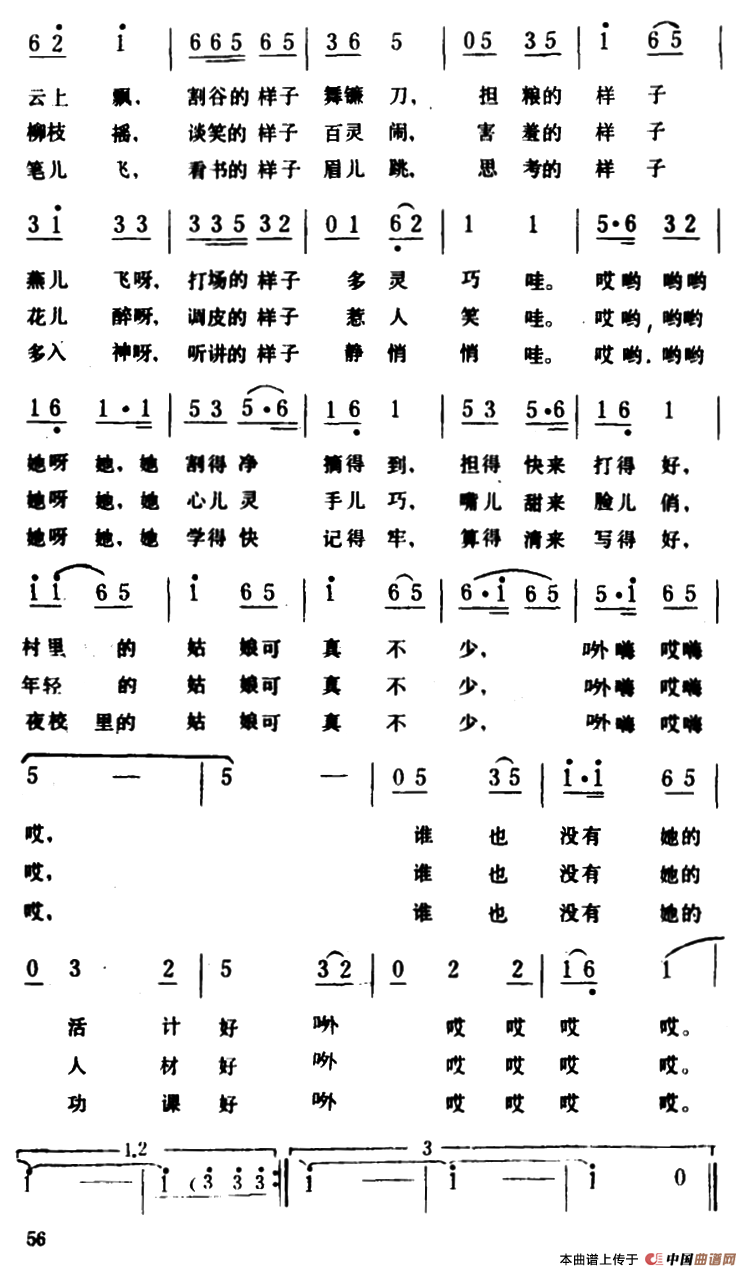 6 2̇ i̇ | 6 6 5 6 5 | 3 6 5 | 0 5 3 5 | i̇ 6 5 |
云上 飘， 割谷的 样子 舞镰 刀， 担 粮的 样 子
柳枝 摇， 谈笑的 样子 百灵 闹， 害 羞的 样 子
笔儿 飞， 看书的 样子 眉儿 跳， 思 考的 样 子
3 i̇ 3 3 | 3 3 5 3 2 | 0 1 6̣ 2 | 1 1 | 5·6 3 2 |
燕儿 飞呀， 打场的 样子 多 灵 巧 哇。 哎哟 哟哟
花儿 醉呀， 调皮的 样子 惹 人 笑 哇。 哎哟， 哟哟
多入 神呀， 听讲的 样子 静 悄 悄 哇。 哎哟． 哟哟
1 6̣ 1·1 | 5 3 5·6 | 1 6̣ 1 | 5 3 5·6 | 1 6̣ 1 |
她呀 她，她 割得 净 摘得 到， 担得 快来 打得 好，
她呀 她，她 心儿 灵 手儿 巧， 嘴儿 甜来 脸儿 俏，
她呀 她，她 学得 快 记得 牢， 算得 清来 写得 好，
i̇ i̇ 6 5 | i̇ 6 5 | i̇ 6 5 | 6·i̇ 6 5 | 5·i̇ 6 5 |
村里 的 姑 娘可 真 不 少， 哟嗨 哎嗨
年轻 的 姑 娘可 真 不 少， 哟嗨 哎嗨
夜校 里的 姑 娘可 真 不 少， 哟嗨 哎嗨
5 — | 5 — | 0 5 3 5 | i̇·i̇ 6 5 |
哎， 谁 也 没有 她的
哎， 谁 也 没有 她的
哎， 谁 也 没有 她的
0 3 2 | 5 3 2 | 0 2 2 | 1 6̣ 1 |
活 计 好 哟 哎 哎 哎 哎。
人 材 好 哟 哎 哎 哎 哎。
功 课 好 哟 哎 哎 哎 哎。
1.2 3
i̇ — | i̇ (3̇ 3̇ 3̇ :‖ i̇ — | i̇ — | i̇ 0 ‖
56
本曲谱上传于 中国曲谱网